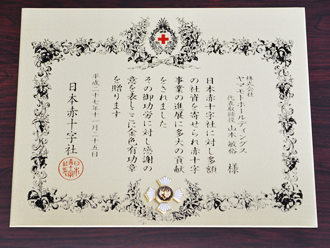 株式会社
ヤマモトホールディングス
代表取締役 山本 敏裕 様
日本赤十字社に対し多額
の社資を寄せられ赤十字
事業の進展に多大の貢献
をされました
その御功労に対し感謝の
意を表しここに金色有功章
を贈ります
平成二十七年十一月二十五日
日本赤十字社